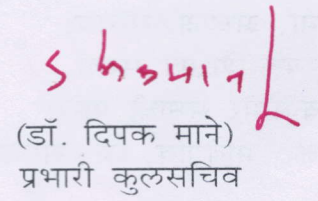 (डॉ. दिपक माने)
प्रभारी कुलसचिव